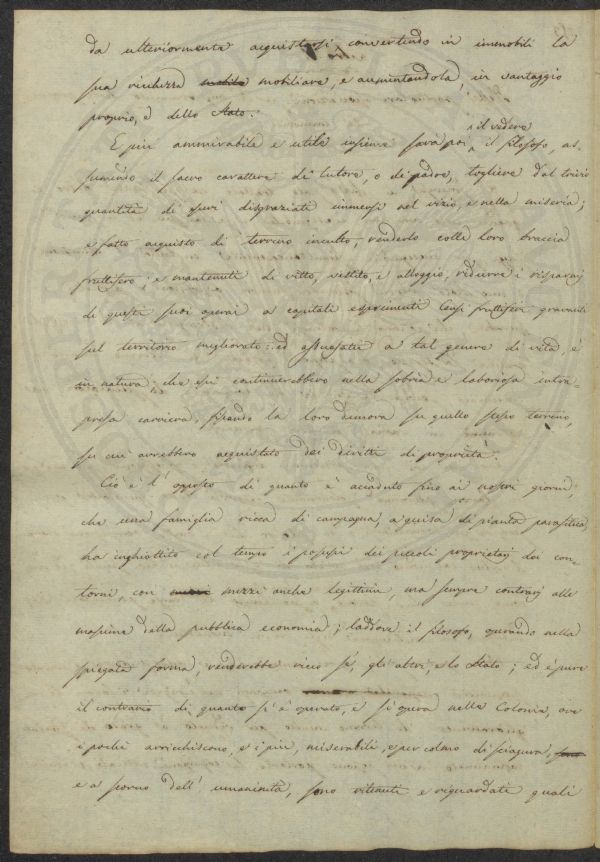 da ulteriormente acquistarsi, convertendo in immobili la
sua ricchezza mobiliare, e aumentandola, in vantaggio
proprio, e dello Stato.
E più ammirabile e utile insieme sarà poi il vedere il filosofo, as-
sumendo il sacro carattere di tutore, o di padre, togliere dal trivio
quantità di esseri disgraziati immersi nel vizio, e nella miseria;
e fatto acquisto di terreno incolto, renderlo colle loro braccia
fruttifero; e mantenuti di vitto, vestito, e alloggio, ridurre i risparmj
di questi suoi operai a capitali esprimenti Censi fruttiferi gravanti
sul territorio migliorato: ed assuefatti a tal genere di vita, è
in natura, che essi continuerebbero nella sobria e laboriosa intra-
presa carriera, fissando la loro dimora su quello stesso terreno,
su cui avrebbero acquistato dei diritti di proprietà.
Ciò è l'opposto di quanto è accaduto fino ai nostri giorni,
che una famiglia ricca di campagna, a guisa di pianta parasitica
ha inghiottito col tempo i possessi dei piccoli proprietarj dei con-
torni, con mezzi anche legittimi, ma sempre contrarj alle
massime della pubblica economia; laddove il filosofo, operando nella
spiegata forma, renderebbe ricco sé, gli altri, e lo Stato; ed è pure
il contrario di quanto si è operato, e si opera nelle Colonie, ove
i pochi arricchiscono, e i più, miserabili, e per colmo di sciagura,
e a scorno dell'umanità, sono ritenuti e riguardati quali